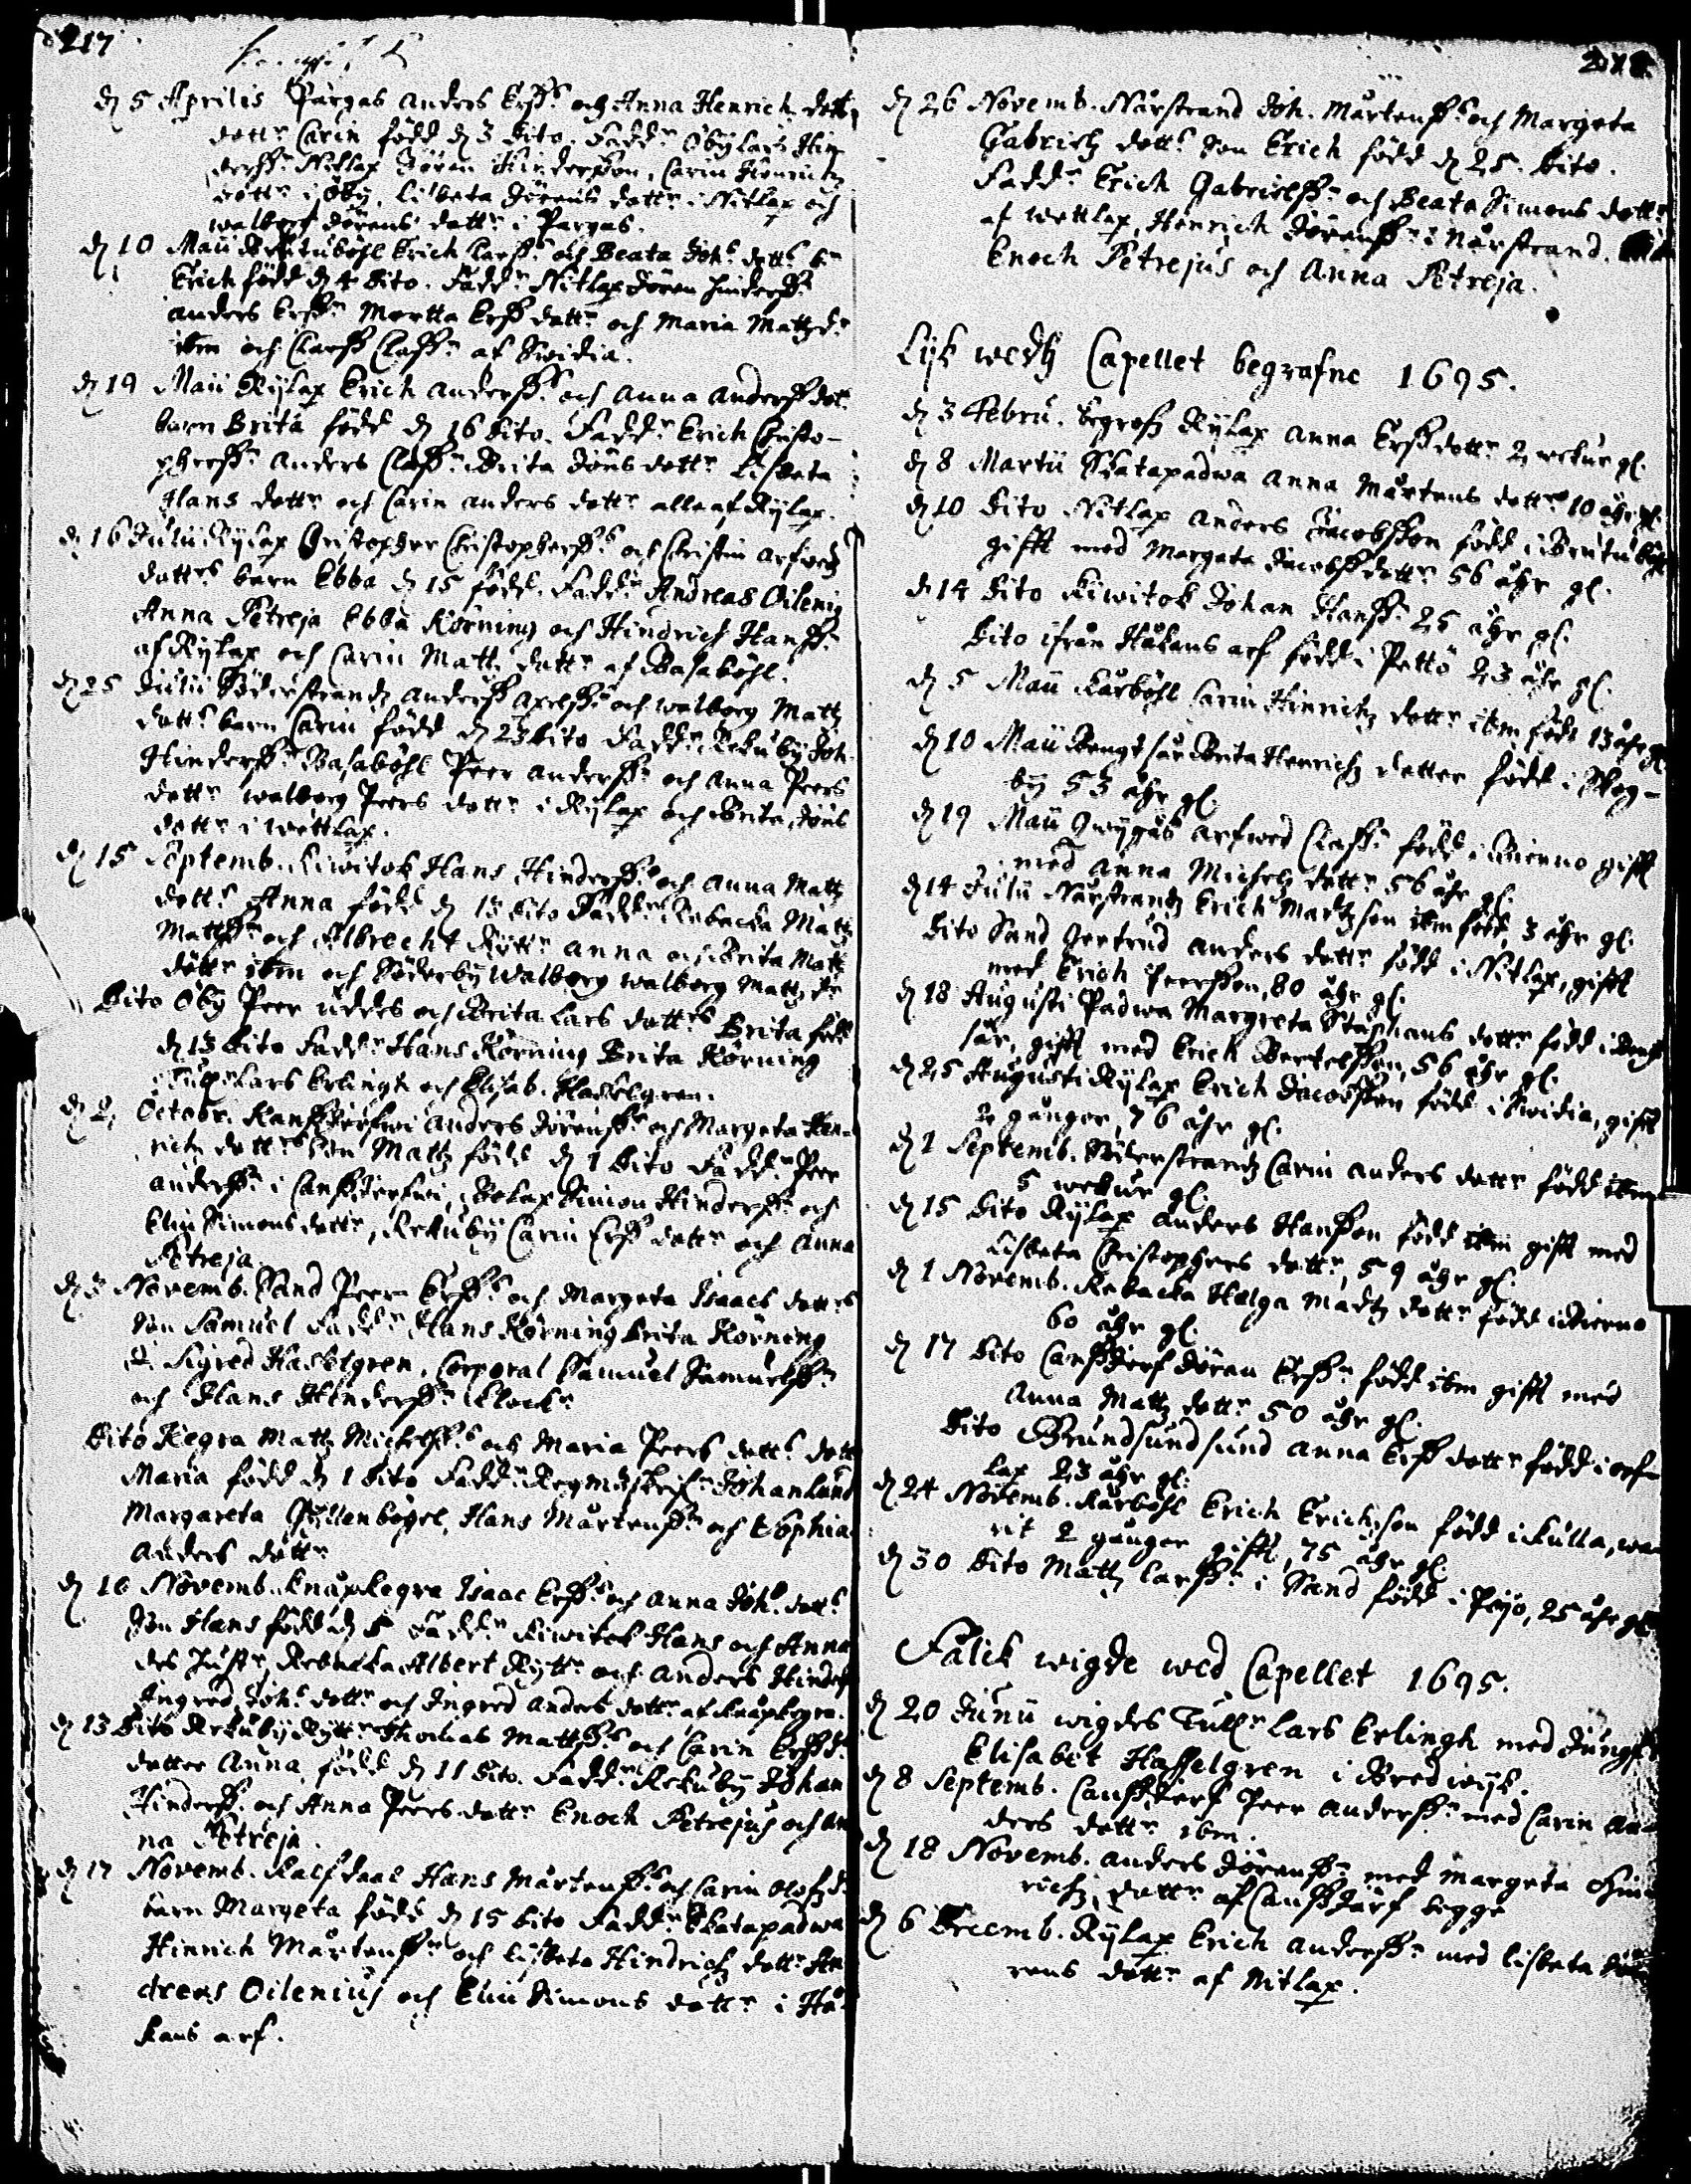 217
d 5 Aprilis Pargas Anders Erßs och Anna Henrichz dottrs
dottr Carin född d 3 dito. Faddr Öby Lars Hin-
derßr Nitlax Jören Hinderßon, Carin Henrichz
dottr i Öby, Lisbeta Jörens dottr i Nitlax och
Walborg Jörens dottr i Pargas.
d 10 Maii Brutuböhl Erich Larßs och Beata Johs dotts
Erich född d 4 dito. Faddr Nitlax Jören Hinderßr
Anders Erßr Martta Erß dottr och Maria Mattz dr
ibm och Clarß Claßr af Swidia.
d 19 Maii Rylax Erich Anderßs och Anna Anderß dotr
barn Brita född d 16 dito. Faddr Erich Christo-
pherßr Anders Claßr Brita Jöns dottr Lisbeta
Hans dottr och Carin Anders dottr alla af Rylax.
d 16 Julii Rylax Christopher Christopherßs och Christin Arfwedz
dottrs barn Ebba d 15 född. Faddr Andreas Oileniz
Anna Petreja Ebba Körning och Hindrich Hanßr
af Rylax och Carin Mattz dottr af Basaböhl.
d 25 Julii Söderstrandz Anderß Axelßs och Walborg Mattz
dotts barn Carin född d 23 dito Faddr Rekuby Joh.
Hinderßr Basaböhl Peer Anderßr och Anna Peers
dottr Walborg Peers dottr i Rylax och Brita Jöns
dottr i Wettlax.
d 15 Septemb. Kiwitok Hans Hinderßs och Anna Mattz
dotts Anna född d 13 dito Faddr Rebacka Mattz
Mattßr och Albrecht Ryttr Anna och Brita Mattz
dottr ibm och Söderby Walborg Walborg Mattz dr
Dito Öby Peer Uddes och Brita Lars dottrs Brita född
d 13 dito Faddr Hans Körning Brita Körning
Tulln Lars Erlingh och Elisab. Hasselgren.
d 2 Octobr. Kanßkierfwi Anders Jörenßs och Margeta Hen-
richz dottrs Son Mattz född d 1 dito Faddr Peer
Anderßr i Canßkierfwi, Bolax Simon Hinderßr och
Elin Simons dottr, Rekuby Carin Erß dottr och Anna
Petreja.
d 3 Novemb. Sand Peer Erßs och Margeta Isaacs dottrs
Son Samuel Faddr Hans Körning Brita Körning
Sigred Hasselgren, Corporal Samuel Samuelßr
och Hans Hinderßr Klockr
Dito Kegra Mattz Michelßs och Maria Peers dotts dottr
Maria född d 1 dito Faddr Regmdskrifr Johan Lund
Margareta Gyllenbögel, Hans Mårtenßr och Sophia
Anders dottr
d 10 Novemb. Knapkegra Isaac Erßs och Anna Johs dotts
Son Hans född d 5 Faddr Kiwitok Hans och Anna
des hustr, Rebacka Albert Ryttr och Anders Hinders
Ingred Johs dottr och Ingred Anders dottr af Knapkegra.
d 13 dito Rekuby Ryttr Thomas Mattßs och Carin Erß ds
dotter Anna född d 11 dito. Faddr Rekuby Johan
Hinderßr och Anna Peers dottr Enoch Petrejus och An
na Petreja.
d 17 Novemb. Kalfdaal Hans Mårtenßs och Carin Olofz ds
barn Margeta född d 15 dito Faddr Skatapadwa
Hinrich Mårtenßr och Lisbeta Hindrichz dottr An
dreas Oilenius och Elin Simons dottr i Hå-
kans arf.
218
d 26 Novemb. Nårstrand Joh. Mårtenßs och Margeta
Gabrielz dotts Son Erich född d 25. dito.
Faddr Erich Gabrielßr och Beata Simons dottr
af Wettlax, Henrich Jörenßr i Nårstrand.
Enoch Petrejus och Anna Petreja.
Lijk wedh Capellet begrafne 1695.
d 3 Febru. begrofz Rylax Anna Erß dottr 2 wekur gl.
d 8 Martii Skatapadwa Anna Mårtens dottr 10 åhr gl.
d 10 dito Nitlax Anders Jacobßon född i Brutuböhl
gifft med Margeta Jacobß dottr 56 åhr gl.
d 14 dito Kiwitok Johan Hanßr 25 åhr gl.
Dito ifrån Håkans arf född i Pettö 23 åhr gl.
d 5 Maii Karböhl Carin Hinrichz dottr ibm född 13 åhr gl.
d 10 Maii Bengtsår Brita Henrichz dotter född i Skog-
by 53 åhr gl.
d 19 Maii Gwygås Arfwed Claßr född i Bierno gifft
med Anna Michelz dottr 56 åhr gl.
d 14 Julii Nårstrandz Erich Mardtzson ibm född 3 åhr gl.
Dito Sand Gertrud Anders dottr född i Nitlax, gifft
med Erich Peerßon, 80 åhr gl.
d 18 Augusti Padwa Margreta Staphans dottr född i Bengt
sår, gifft med Erich Bertelßon, 56 åhr gl.
d 25 Augusti Rylax Erich Jacobßon född i Swidia, gifft
2 gånger, 76 åhr gl.
d 1 Septemb. Söderstrandz Carin Anders dottr född ibm
5 wekur gl.
d 15 dito Rylax Anders Hanßon född ibm gifft med
Lisbeta Christophers dottr, 59 åhr gl.
d 1 Novemb. Rebacka Halga Madtz dottr född i Bierno
60 åhr gl.
d 17 dito Canßkierf Jören Erßr född ibm gifft med
Anna Mattz dottr 50 åhr gl.
Dito Grundsundsund Anna Erß dottr född i orf-
lax 23 åhr gl.
d 24 Novemb. Karböhl Erich Erichson född i Kulla, wa-
rit 2 gånger gifft, 75 åhr gl.
d 30 dito Mattz Larßr i Sand född i Pojo, 25 åhr gl
Fålck wigde wed Capellet 1695.
d 20 Junii wigdes Tullr Lars Erlingh med Jungfr
Elisabet Hasselgren i Bredwijk.
d 8 Septemb. Canßkierf Peer Anderßr med Carin An-
ders dottr ibm.
d 18 Novemb. Anders Jörenßr med Margeta Hin-
richz dottr af Canßkiärf begge
d 6 Decemb. Rylax Erich Anderßr med Lisbeta Jö-
rens dottr af Nitlax.